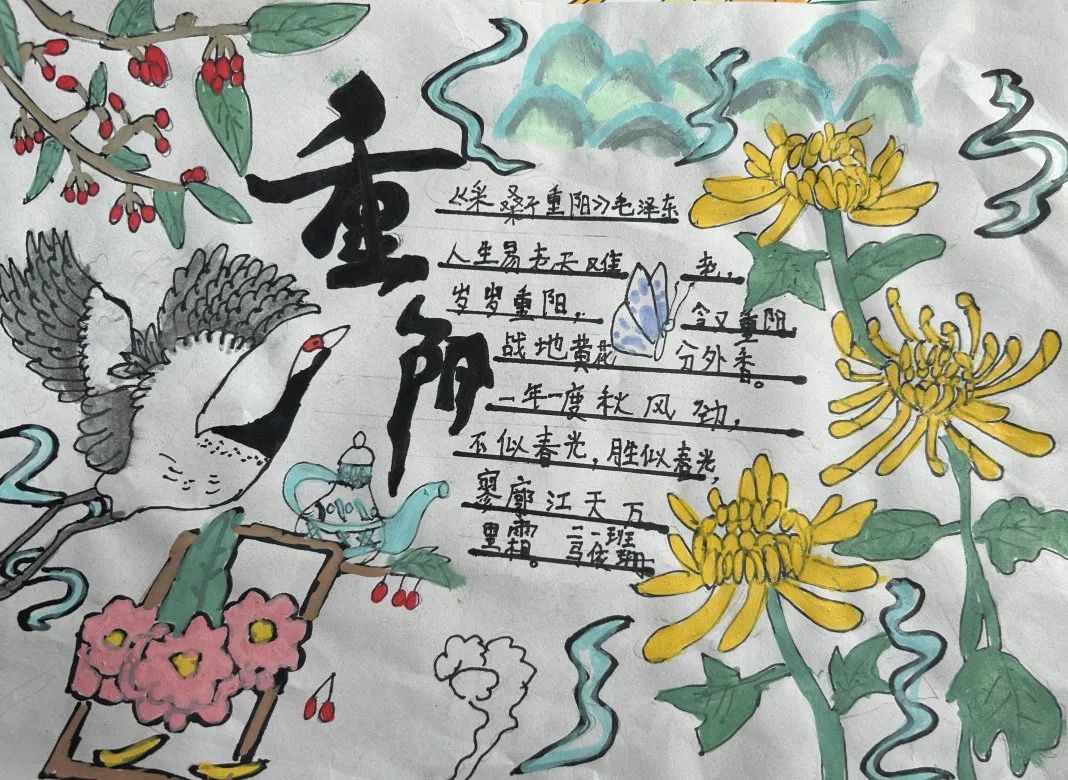 重阳
《采桑子重阳》毛泽东
人生易老天难老，
岁岁重阳，今又重阳
战地黄花分外香。
一年一度秋风劲，
不似春光，胜似春光，
寥廓江天万
里霜。 二一班
马俊珊